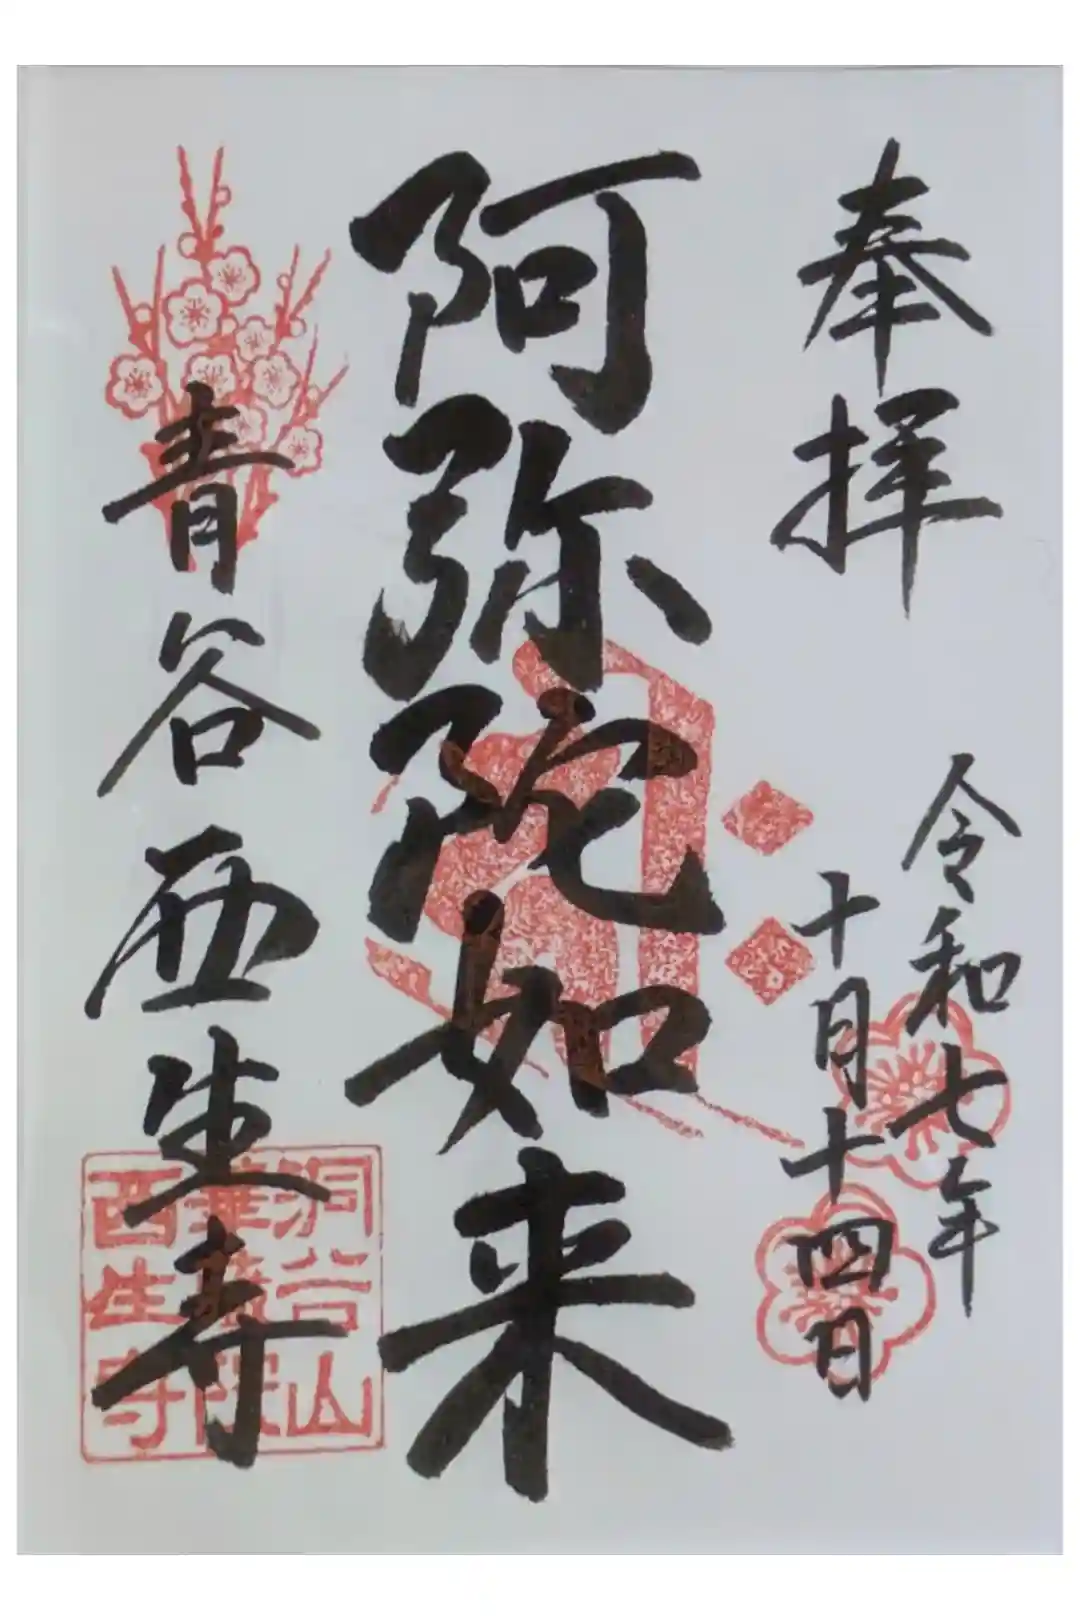 奉拝
令和七年
十月十四日
阿弥陀如来
青谷西生寺
洞谷山
華厳院
西生寺